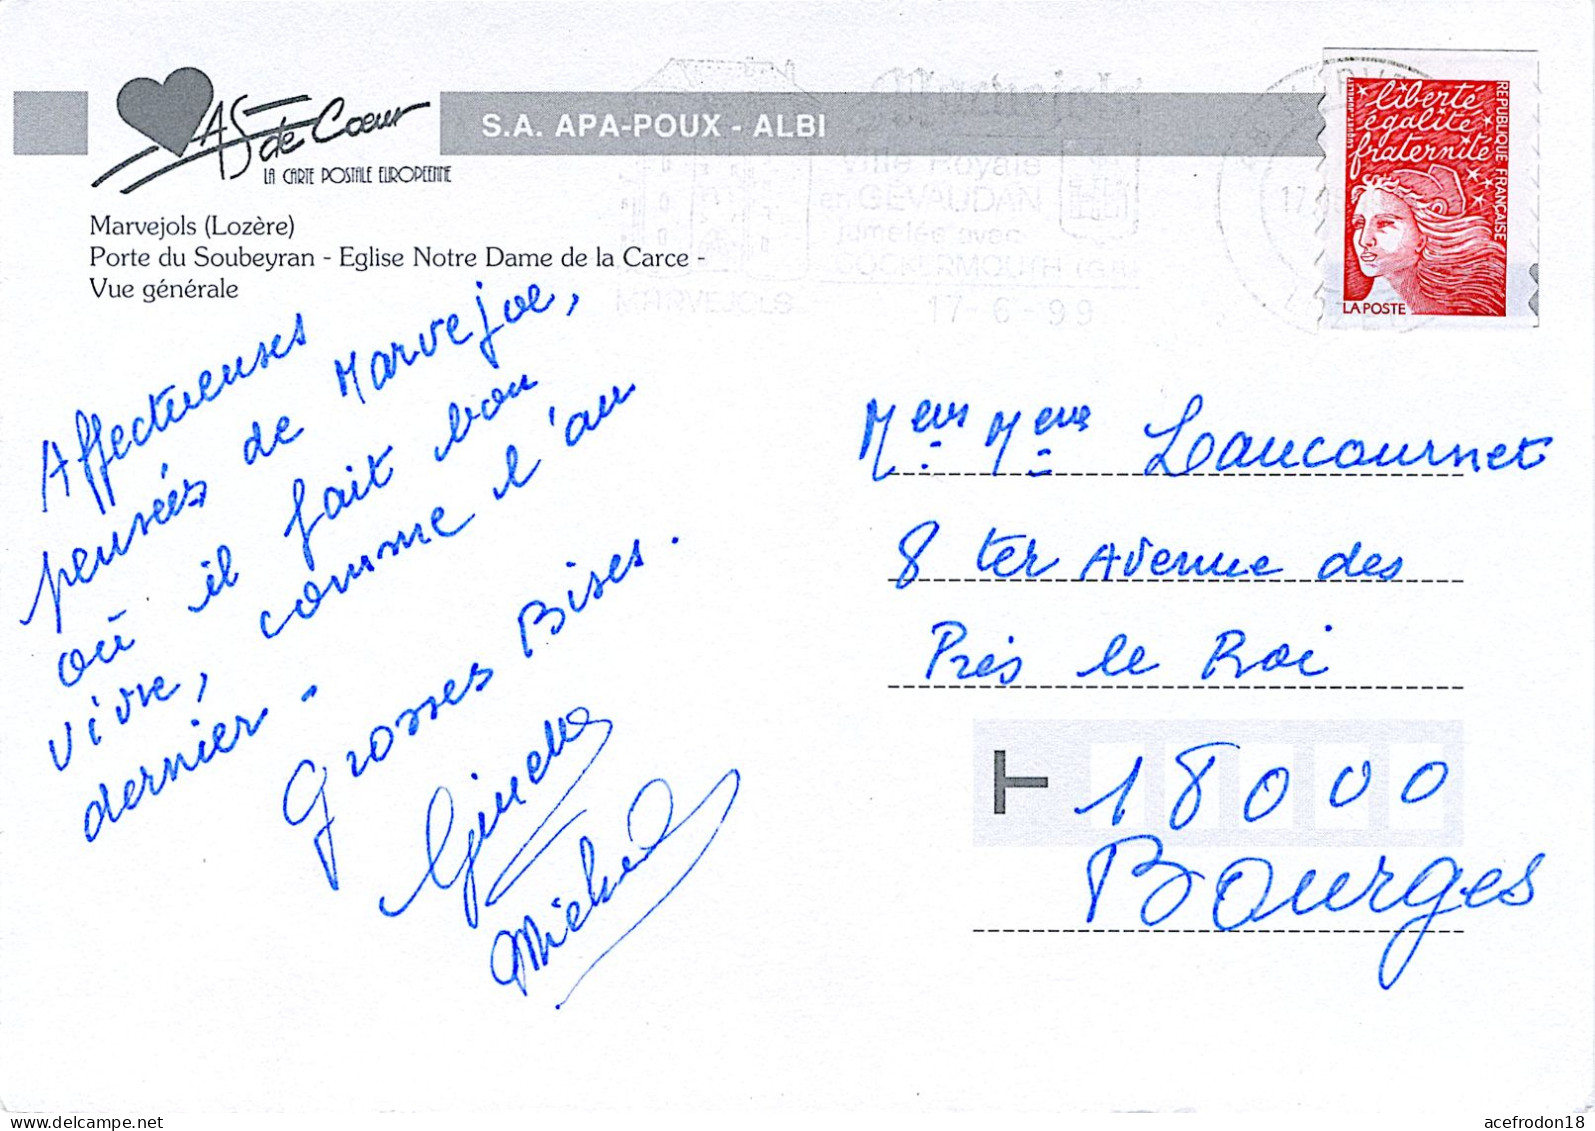 AS de Cœur
LA CARTE POSTALE EUROPEENNE
S.A. APA-POUX - ALBI
Marvejols (Lozère)
Porte du Soubeyran - Eglise Notre Dame de la Carce -
Vue générale
Marvejols
Ville Royale
en GEVAUDAN
jumelée avec
COCKERMOUTH (G.B)
MARVEJOLS
17-6-99
liberté
égalité
fraternité
RÉPUBLIQUE FRANÇAISE
LA POSTE
Affectueuses
pensées de Marvejoe,
où il fait bon
vivre, comme l'an
dernier -
Grosses Bises.
Ginette
Michel
Meur Meme Laucournet
8 ter Avenue des
Prés le Roi
18000
Bourges
acefrodon18